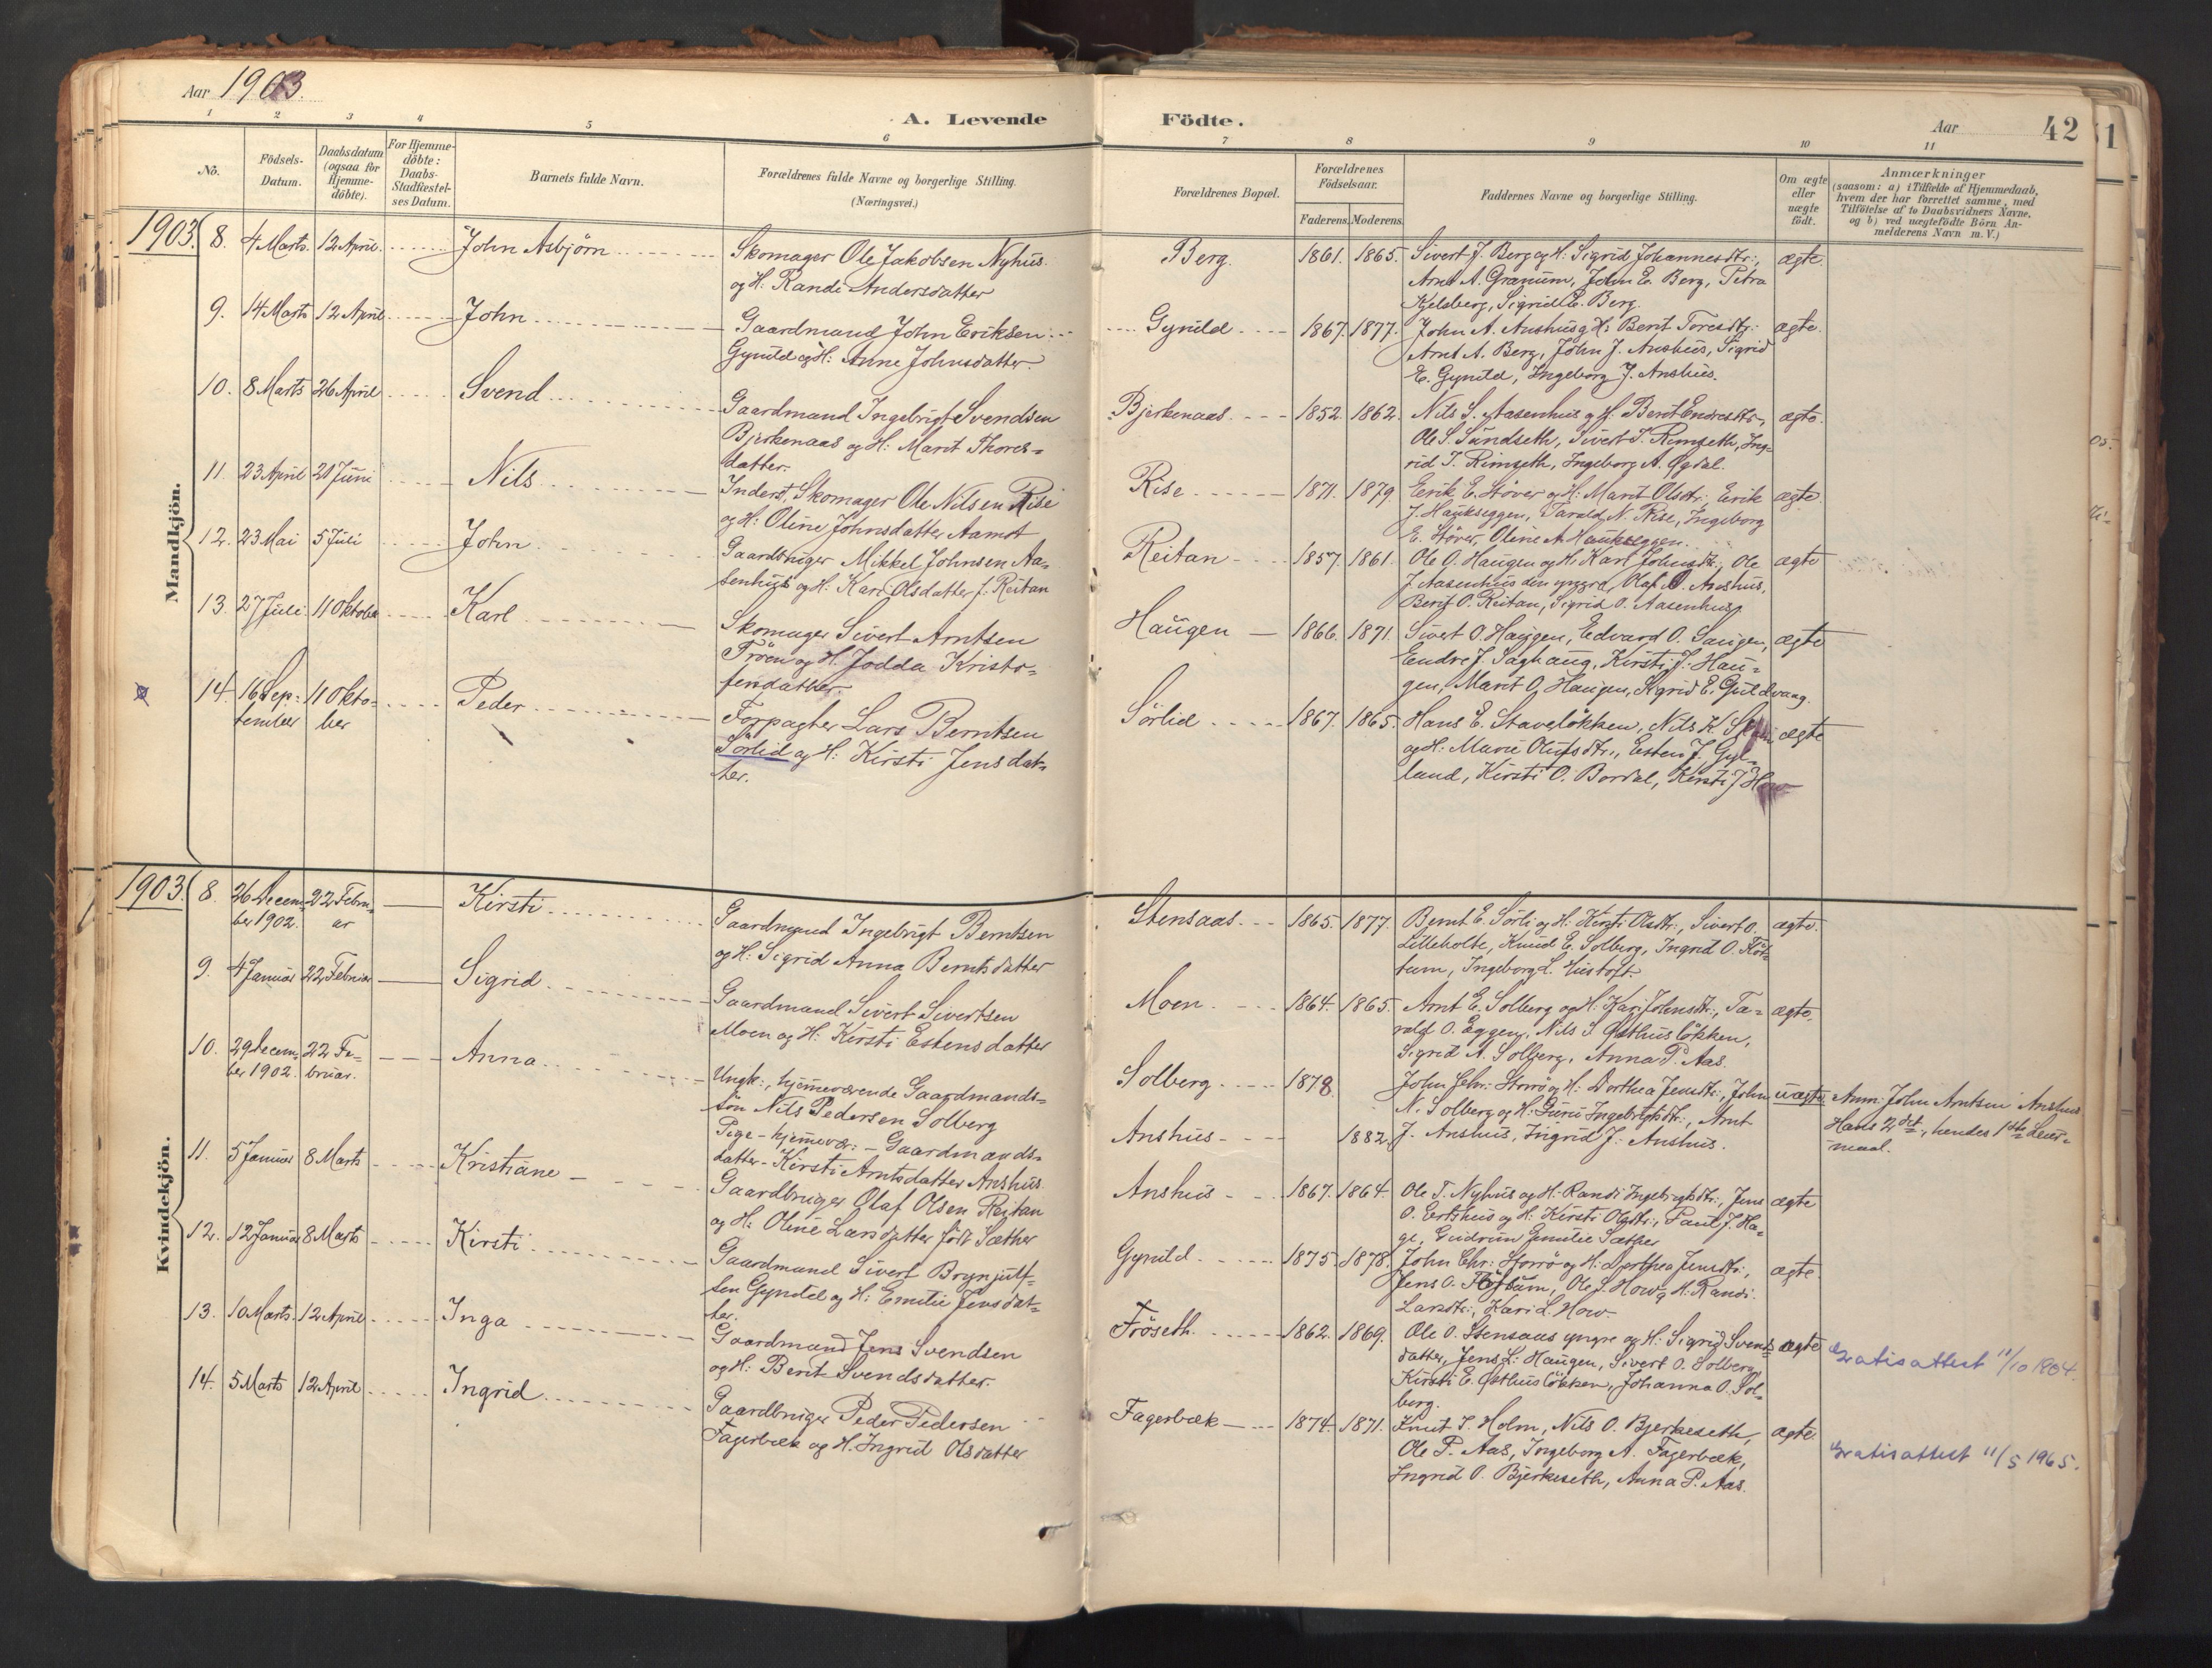 Aar 1903.
A. Levende
Födte.
Aar
42
1
2
3
4
5
6
7
8
9
10
11
No.
Födsels-
Datum.
Daabsdatum
(ogsaa for
Hjemme-
döbte).
For Hjemme-
döbte:
Daabs-
Stadfæstel-
ses Datum.
Barnets fulde Navn.
Forældrenes fulde Navne og borgerlige Stilling.
(Næringsvei.)
Forældrenes Bopæl.
Forældrenes
Födselsaar.
Faderens.
Moderens.
Faddernes Navne og borgerlige Stilling.
Om ægte
eller
uægte
födt.
Anmærkninger
(saasom: a) i Tilfælde af Hjemmedaab,
hvem der har forrettet samme, med
Tilföielse af to Daabsvidners Navne,
og b) ved uægtefödte Börn An-
melderens Navn m. V.)
Mandkjön.
1903. 8. 4 Marts. 12 April. John Asbjörn
Skomager Ole Jakobsen Nyhus.
og H. Randi Andersdatter
Berg. 1861. 1865.
Sivert J. Berg og H: Sigrid Johannesdtr:,
Arnt A. Granum, John E. Berg, Petra
Kjelsberg, Sigrid E. Berg.
ægte.
9. 14 Marts 12 April John
Gaardmand John Eriksen
Gynild og H: Anne Johnsdatter.
Gynild 1867. 1877.
John A. Anshus og H: Berit Toresdtr:
Arnt A. Berg, John J. Anshus, Sigrid
E. Gynild, Ingeborg J. Anshus.
ægte.
10. 8 Marts 26 April Svend
Gaardmand Ingebrigt Svendsen
Bjerkenaas og H: Marit Thores-
datter.
Bjerkenaas 1852. 1862.
Nils S. Aasenhus og H. Berit Endresdtr.,
Ole S. Sundseth, Sivert T. Rimseth, Ing-
rid T. Rimseth, Ingeborg A. Ögdal.
ægte.
11. 23 April 21 Juni Nils
Inderst, Skomager Ole Nilsen Rise
og H: Oline Johnsdatter Aamot
Rise 1871. 1879.
Erik E. Stöver og H: Marit Olsdtr: Erik
J. Haukseggen, Tarald N. Rise, Ingeborg
E. Stöver, Oline A. Haukseggen.
ægte.
12. 23 Mai 5 Juli John
Gaardbruger Mikkel Johnsen Aa-
senhus og H: Kari Olsdatter f. Reitan
Reitan 1857. 1861.
Ole O. Haugen og H: Kari Johnsdtr:, Ole
J. Aasenhus den yngre, Olaf O. Anshus,
Berit O. Reitan, Sigrid O. Aasenhus.
ægte
13. 27 Juli 11 Oktober Karl
Skomager Sivert Arntsen
Tröen og H. Jodda Kristo-
fersdatter.
Haugen 1866. 1871.
Sivert O. Haugen, Edvard O. Haugen,
Endre J. Saghaug, Kirsti J. Hau-
gen, Marit O. Haugen, Sigrid E. Guldvaag.
ægte
14. 16 Sep- 11 Okto- Peder
tember ber
Forpagter Lars Berntsen
Sörlid og H: Kirsti Jensdat-
ter.
Sörlid 1867. 1865.
Hans E. Staveløkken, Nils K.
og H: Marie Olufsdtr., Esten J. Gyl-
land, Kirsti O. Bordal, Kirsti J. How
ægte
Kvindekjön.
1903. 8. 26 Decem- 22 Febru- Kirsti
ber 1902. ar
Gaardmand Ingebrigt Berntsen
og H: Sigrid Anna Berntsdatter
Stensaas 1865. 1877.
Bernt E. Sörli og H: Kirsti Olsdtr:, Sivert O.
Lilleholte, Knud E. Solberg, Ingrid O. Flöt-
tum, Ingeborg L.
ægte.
9. 4 Januar 22 Februar Sigrid
Gaardmand Sivert Sivertsen
Moen og H: Kirsti Estensdatter
Moen 1864. 1865.
Arnt E. Solberg og H: Kari Johnsdtr:, Ta-
rald O. Eggen, Nils S. Østhusløkken,
Sigrid A. Solberg, Anna P. Aas.
ægte.
10. 29 Decem- 22 Fe- Anna
ber 1902. bruar.
Ungk:, hjemmeværende Gaardmands-
sön Nils Pedersen Solberg
Pige - hjemmevær: - Gaardmands-
datter - Kirsti Arntsdatter Anshus
Solberg 1878.
Anshus 1882.
John Chr: Storrö og H: Dorthea Jensdtr:, John
N. Solberg og H: Guru Ingebrigtsdtr:, Arnt
J. Anshus, Ingrid J. Anshus.
uægte
Anm: John Arntsen Anshus
Hans 2det, hendes 1ste Leier-
maal.
11. 5 Januar 8 Marts Kristiane
Gaardbruger Olaf Olsen Reitan
og H: Oline Larsdatter født Sæther
Anshus 1867. 1864.
Ole T. Nyhus og H: Randi Ingebrigtsdtr:, Jens
O. Ertshus og H: Kirsti Olsdtr:, Paul J. Ha-
ge, Gudrun Emilie Sæther
ægte
12. 12 Januar 8 Marts Kirsti
Gaardmand Sivert Brynjulf-
sen Gynild og H: Emilie Jensdat-
ter.
Gynild 1875. 1878.
John Chr: Storrö og H: Dorthea Jensdtr:,
Jens O. Flöttum, Ole L. How og H: Randi
Larsdtr:, Kari L. How.
ægte.
13. 10 Marts. 12 April Inga
Gaardmand Jens Svendsen
og H: Berit Svendsdatter.
Fröseth. 1862. 1869.
Ole O. Stensaas yngre og H: Sigrid Svends-
datter, Jens L. Haugen, Sivert O. Solberg,
Kirsti E. Østhusløkken, Johanna O. Sol-
berg.
ægte
Gratisattest 11/10 1904.
14. 5 Marts 12 April Ingrid
Gaardbruger Peder Pedersen
Fagerbæk og H. Ingrid Olsdatter
Fagerbæk 1874. 1871.
Knut S. Holm, Nils O. Bjerkeseth,
Ole P. Aas, Ingeborg A. Fagerbæk,
Ingrid O. Bjerkeseth, Anna P. Aas.
ægte.
Gratisattest 11/5 1965.